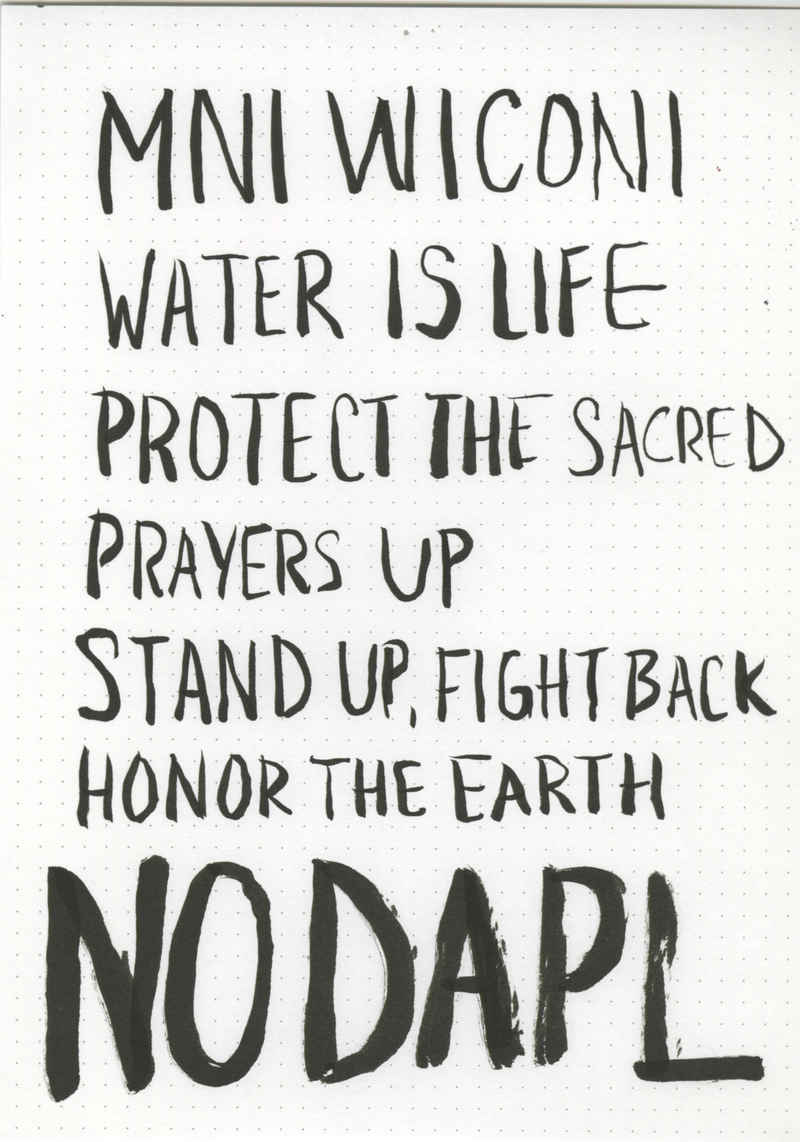 MNI WICONI
WATER IS LIFE
PROTECT THE SACRED
PRAYERS UP
STAND UP, FIGHT BACK
HONOR THE EARTH
NO DAPL